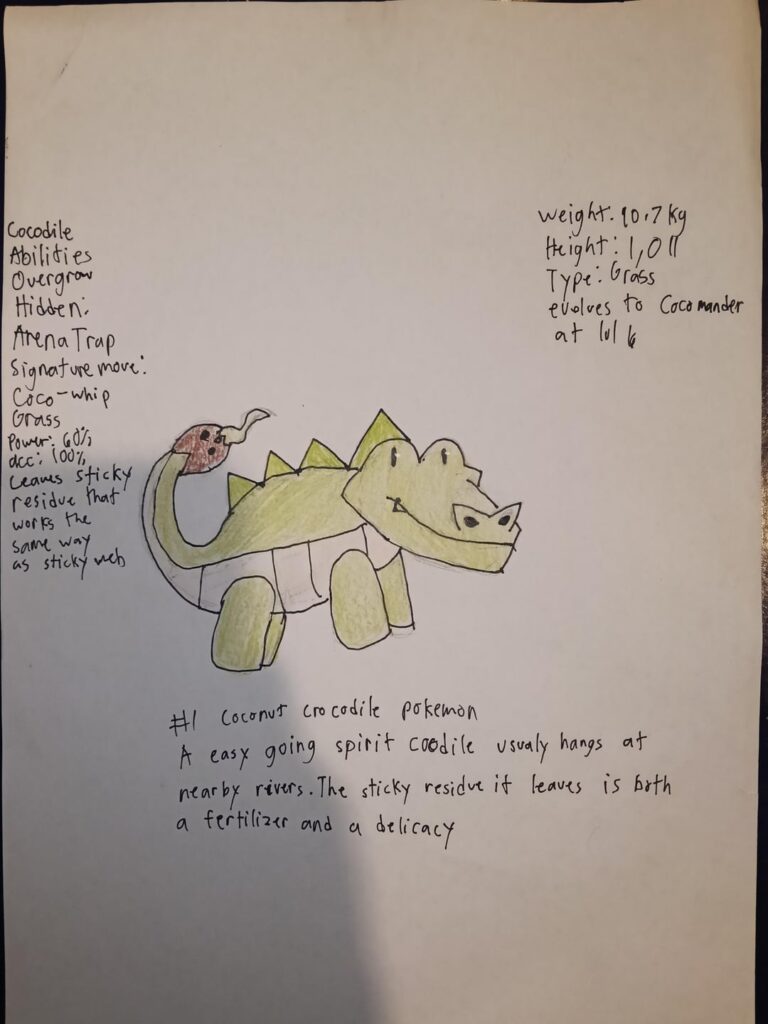 Cocodile
Abilities
Overgrow
Hidden:
Arena Trap
Signature move:
Coco-whip
Grass
Power: 60%
acc: 100%
Leaves sticky
residue that
works the
same way
as sticky web
weight: 90.7 kg
Height: 1,011
Type: Grass
evolves to Cocomander
at lvl 6
#1 Coconut crocodile pokemon
A easy going spirit Coodile usualy hangs at
nearby rivers. The sticky residue it leaves is both
a fertilizer and a delicacy